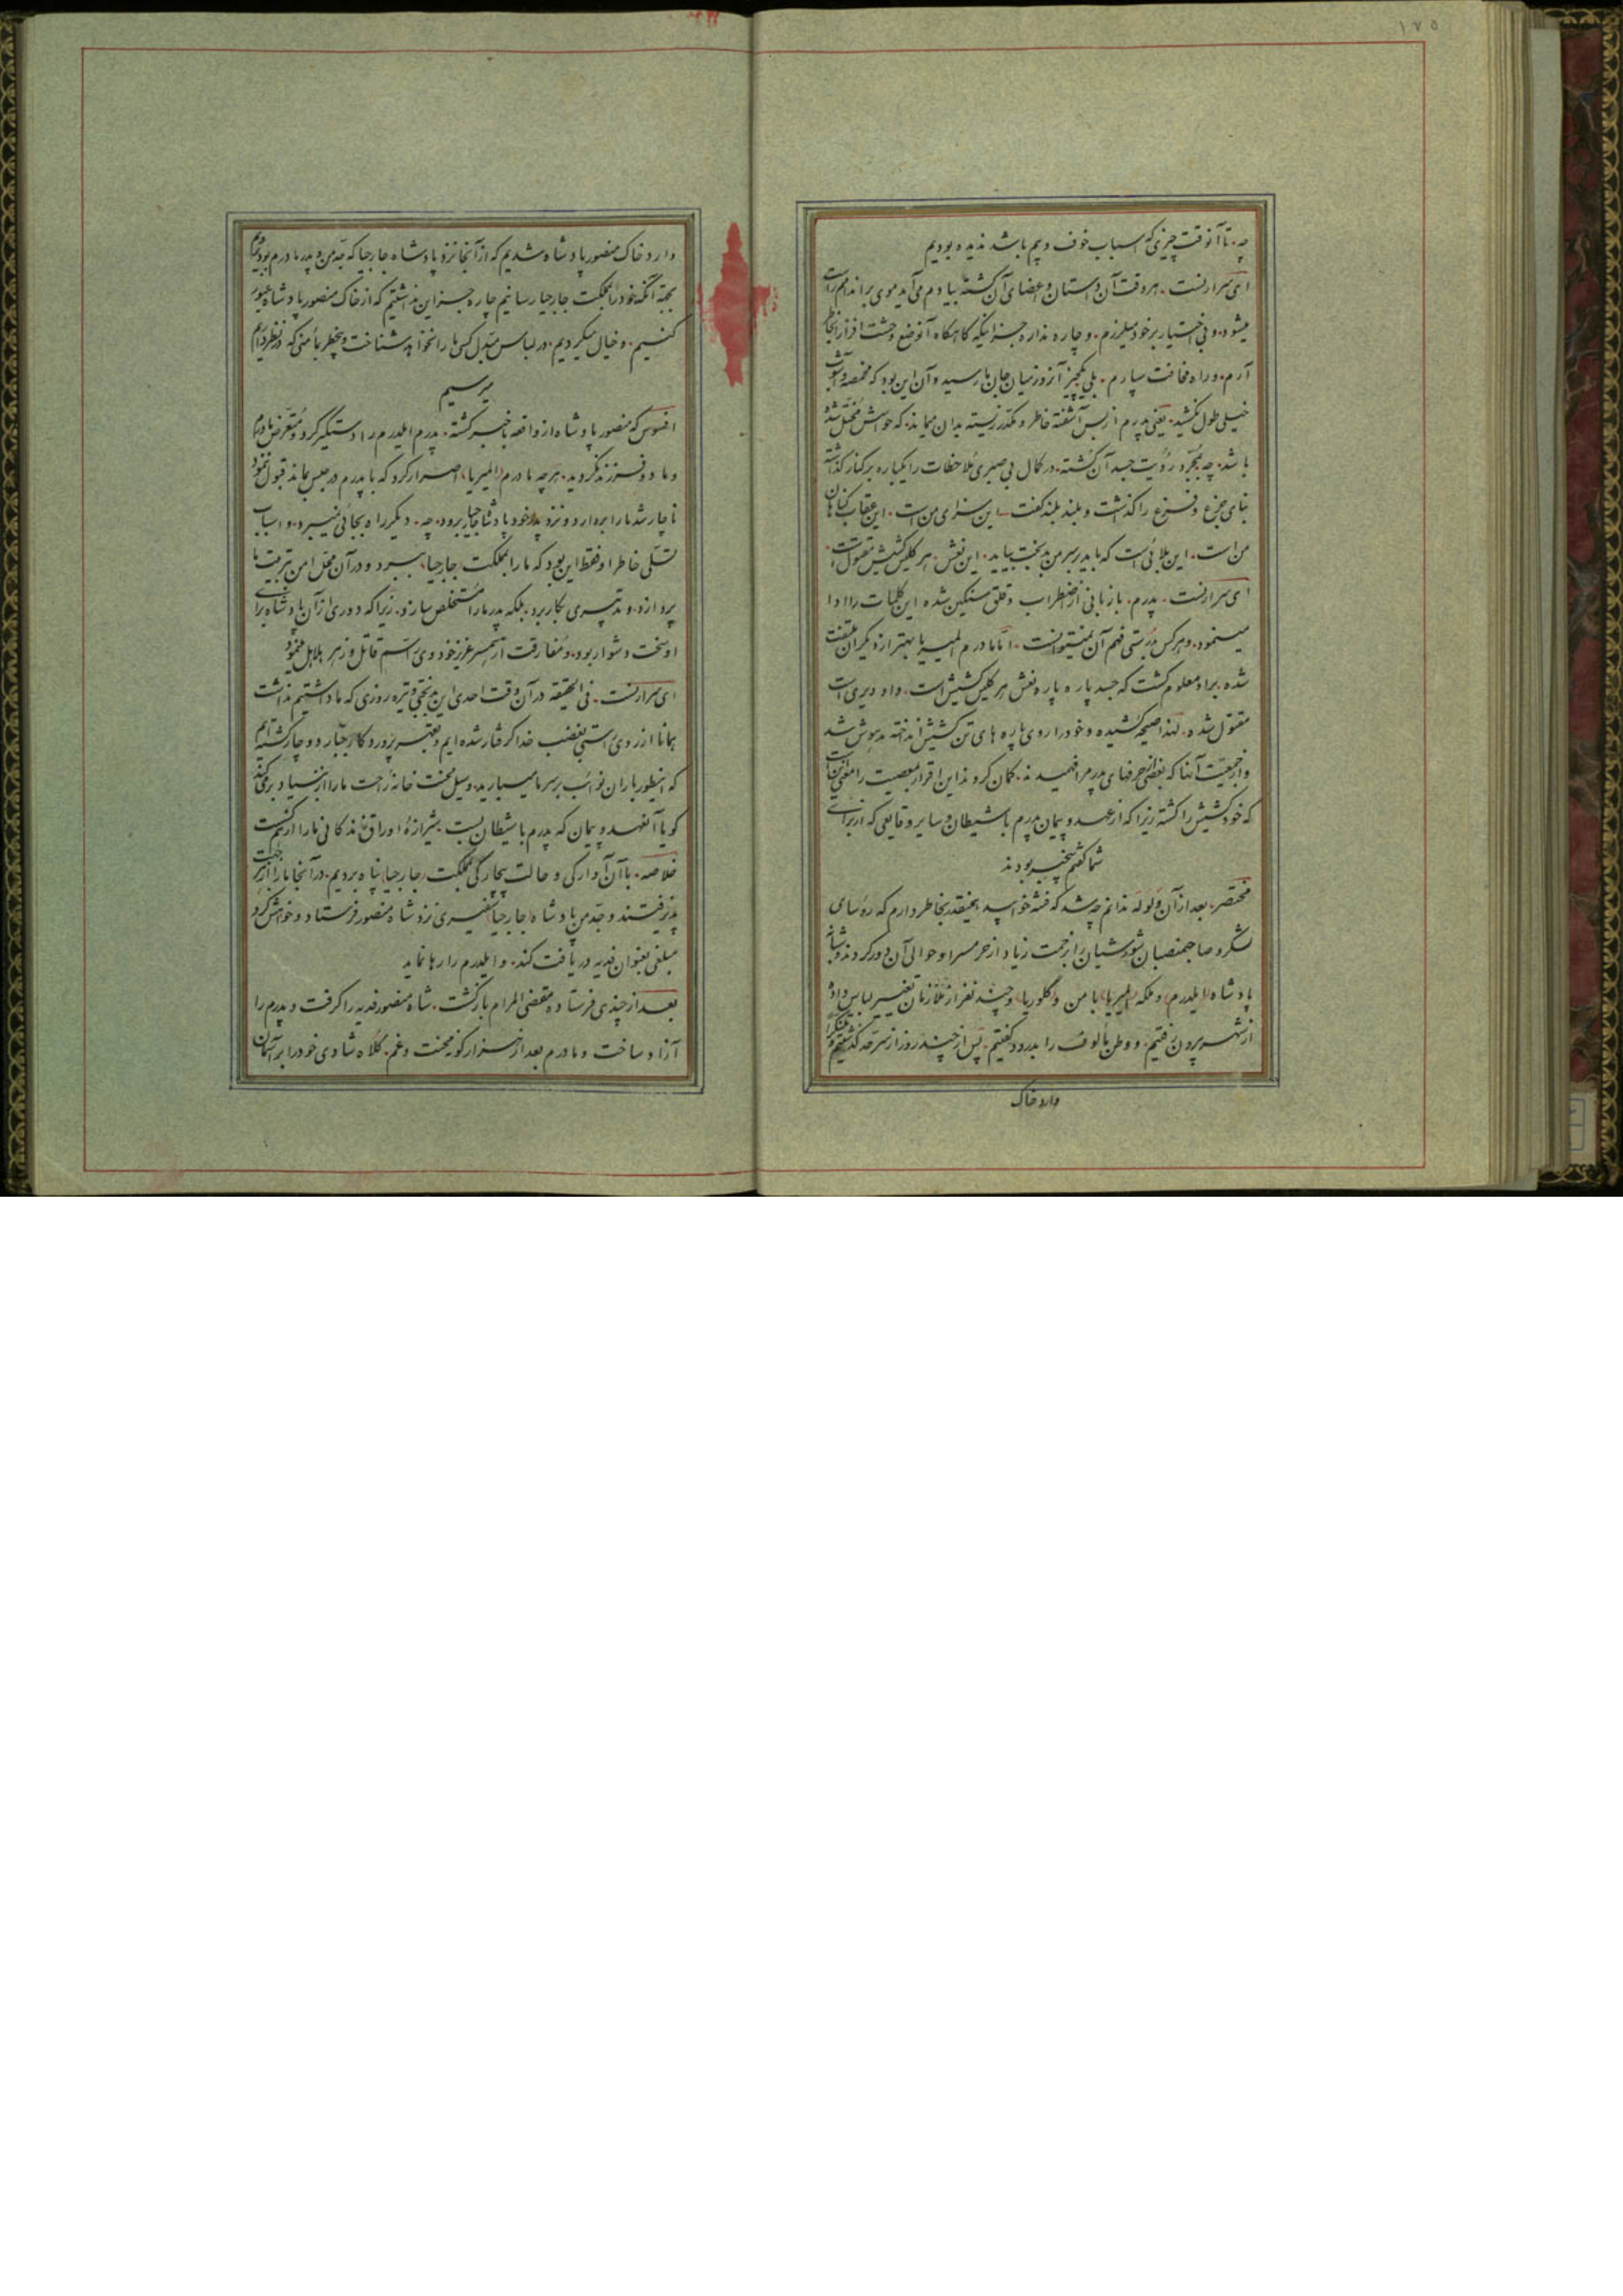 ۱۷۵
چه، تا آنوقت چیزی که اسباب خوف و بیم باشد ندیده بودیم
ای سرارنست، هر وقت آن دستان و اعضای آن کشته بیادم می‌آید موی بر اندامم راست
میشود، و بی اختیار بر خود میلرزم، و چاره ندارم جز اینکه گاهگاه آنوضع وحشت افزا را بخاطر
آرم، و راه مخافت سپارم، بلی یکچیز آنروز میان جان ما رسید و آن این بود که مخمصه و آشوب
خیلی طول نکشید، یعنی پدرم از بس آشفته خاطر و مکدر زیسته بدان میماند که حواسش مختل شده
باشد، چه بمجرد رؤیت جسد آن کشته، در کمال بی صبری ملاحظات را یکباره بر کنار گذاشته
بنای جزع و فزع را گذاشت و بلند بلند گفت، این سزای من است، این عقاب گناهان
من است، این بلائی است که باید بر سر من بدبخت بیاید، این نعش هر کلیس کشیش مقتول است،
ای سرارنست، پدرم، با زبانی از اضطراب و قلق سنگین شده این کلمات را ادا
مینمود، و هر کس بدرستی فهم آن نمیتوانست، امّا مادرم المیریا بهتر از دیگران ملتفت
شده، براو معلوم گشت که جسد پاره پاره نعش هر کلیس کشیش است، و او دیری است
مقتول شده، لهذا صیحه کشیده و خود را روی پاره های تن کشیش انداخته مدهوش شد
و از جمعیّت آنها که بعضی از حرفهای پدر مرا فهمیدند، گمان کردند این اقرار بمعصیت را معنی آنست
که خود کشیش را کشته زیرا که از عهد و پیمان پدرم با شیطان و سایر وقایعی که از برای
شما گفتم بیخبر بودند
مختصر، بعد از آن ولوله ندانم چه شد که فتنه خوابید، همینقدر بخاطر دارم که رؤسای
لشکر و صاحبمنصبان شورشیان را بزحمت زیاد از حرمسرا و حوالی آن دور کردند و شبانه
پادشاه (ایلدرم) و ملکه (المیریا) با من و (گلوریا) و چند نفر از ملازمان تغییر لباس داده
از شهر بیرون رفتیم، و وطن مألوف را بدرود گفتیم، پس از چند روز از سرحد گذشتیم و
وارد خاک
وارد خاک منصور پادشاه شدیم که از آنجا نزد پادشاه جارجیا که جدّ من و پدر مادرم بود برویم
بجهة آنکه خود را بمملکت جارجیا رسانیم چاره جز این نداشتیم که از خاک منصور پادشاه عبور
کنیم، و خیال میکردیم، در لباس مبدّل کسی ما را نخواهد شناخت و بیخطر بمأمنی که در نظر داریم
میرسیم
افسوس که منصور پادشاه از واقعه باخبر گشته، پدرم ایلدرم را دستگیر کرد و متعرّض مادرم
و ما دو فرزند نگردید، هر چه مادرم (المیریا) اصرار کرد که با پدرم در حبس بماند قبول ننمود
ناچار شد ما را بردارد و نزد پدر خود پادشاه جارجیا برود، چه، دیگر راه بجائی نمیبرد، و اسباب
تسلّی خاطر او فقط این بود که ما را بمملکت جارجیا، ببرد و در آن محل امن بتربیت ما
پردازد، و تدبیری بکار برد، بلکه پدر ما را مستخلص سازد، زیرا که دوری از آن پادشاه برای
او سخت دشوار بود، و مفارقت از همسر عزیز خود وی را سم قاتل و زهر هلاهل مینمود
ای سرارنست، فی الحقیقه در آن وقت احدی این بدبختی و تیره روزی که ما داشتیم نداشت
همانا از روی راستی بغضب خدا گرفتار شده ایم و بقهر پروردگار جبّار دوچار گشته ایم
که اینطور باران نوائب بر سر ما میبارید، و سیل محنت خانه راحت ما را از بنیاد بر میکند
گویا آنعهد و پیمان که پدرم با شیطان بست شیرازهٔ اوراق زندگانی ما را از هم گسست
خلاصه، با آن آوارگی و حالت بیچارگی بمملکت (جارجیا) پناه بردیم، در آنجا ما را از هر جهت
پذیرفتند و جدّ من پادشاه (جارجیا) سفیری نزد شاه منصور فرستاد و خواهش کرد
مبلغی بعنوان فدیه دریافت کند، و ایلدرم را رها نماید
بعد از چندی فرستاده مقضی المرام بازگشت، شاه منصور فدیه را گرفت و پدرم را
آزاد ساخت و مادرم بعد از هزار گونه محنت و غم، کلاه شادی خود را بر آسمان